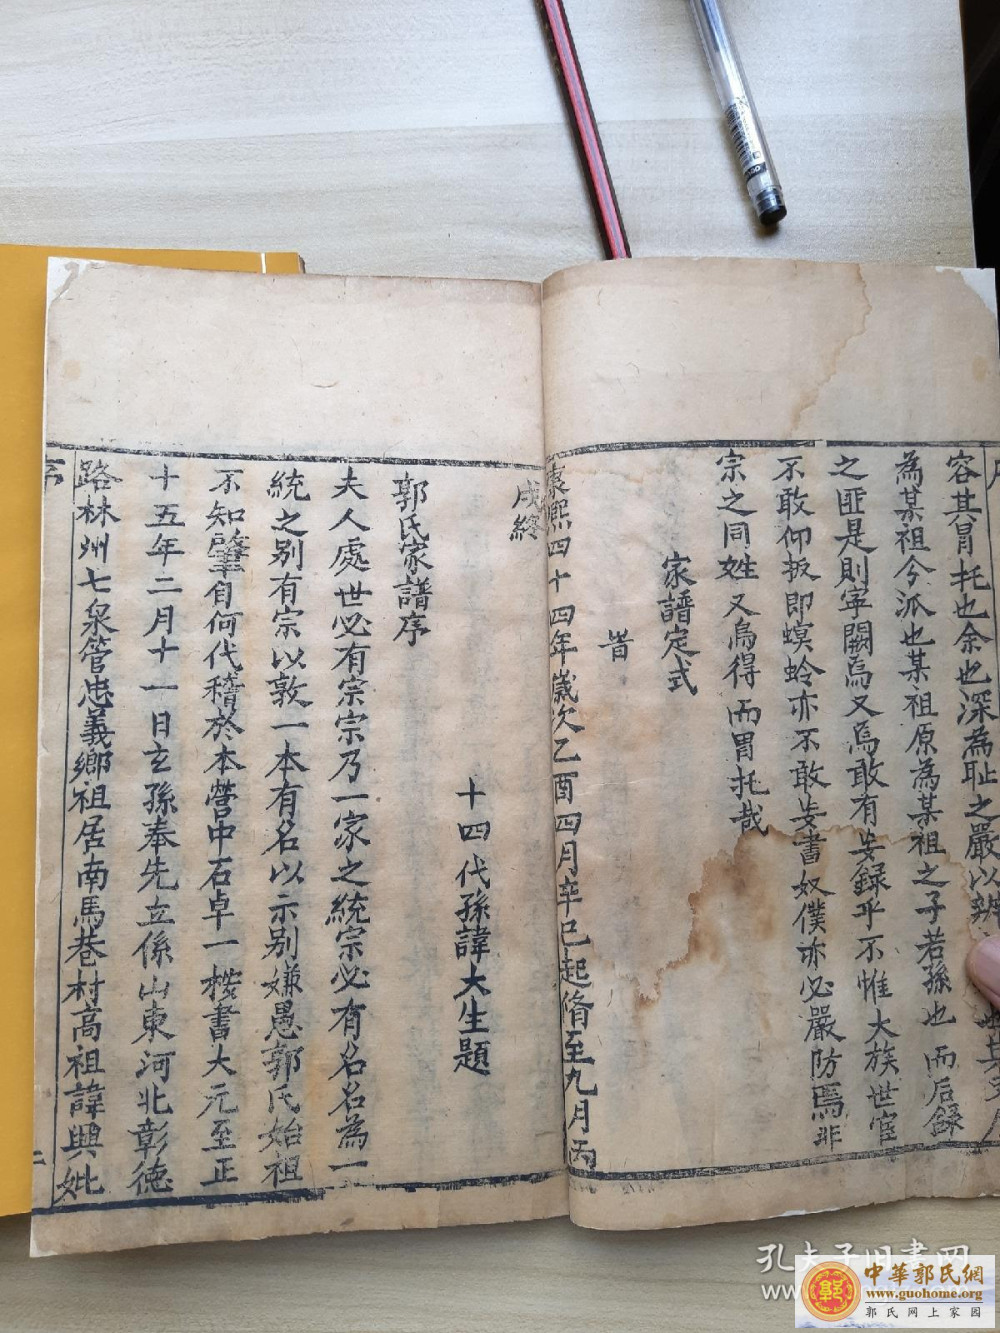 容其冐托也余也深為耻之嚴以辨
為某祖今派也某祖原為某祖之子若孫也而后録
之匪是則寧闕焉又焉敢有妄録乎不惟大族世宦
不敢仰扳即螟蛉亦不敢妄書奴僕亦必嚴防焉非
宗之同姓又烏得而冐托哉
家譜定式
旹
康熙四十四年歲次乙酉四月辛巳起脩至九月丙
戌終
十四代孫諱大生題
郭氏家譜序
夫人處世必有宗宗乃一家之統宗必有名名為一
統之别有宗以敦一本有名以示别嫌愚郭氏始祖
不知肇自何代稽於本營中石卓一桉書大元至正
十五年二月十一日玄孫奉先立係山東河北彰德
路林州七泉管忠義鄉祖居南馬巷村高祖諱興妣
序
二
孔夫子旧书网
中華郭氏網
www.guohome.org
郭氏网上家园